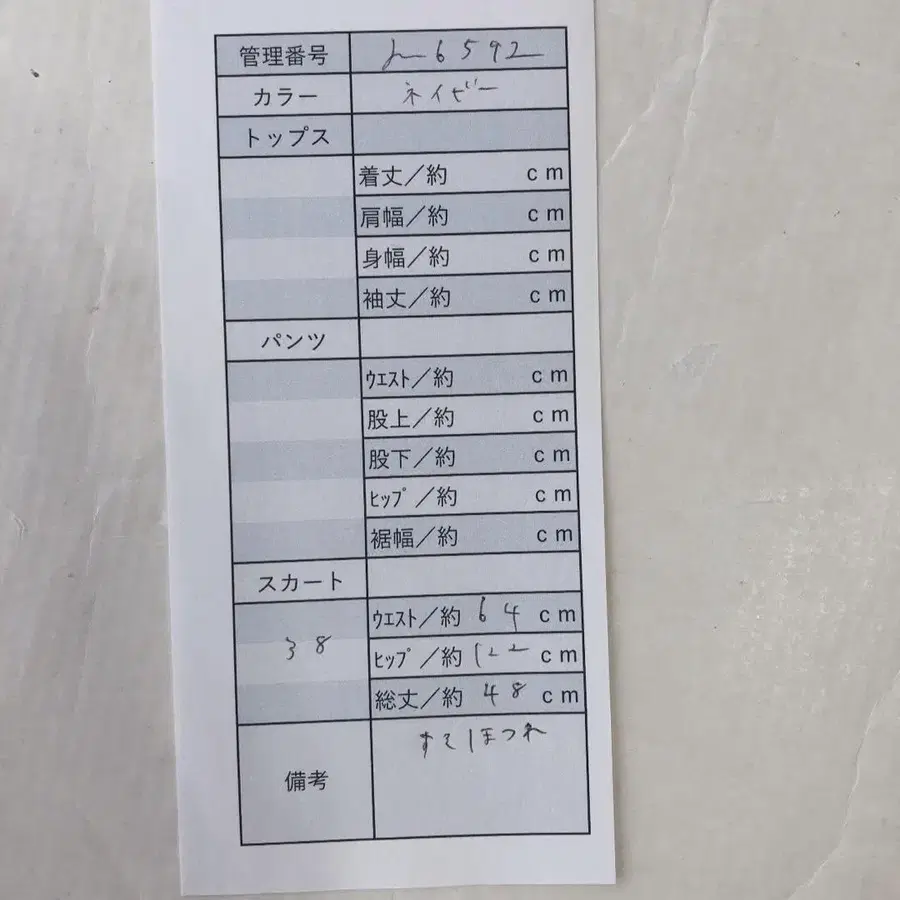 管理番号 6592
カラー ネイビー
トップス
着丈／約 cm
肩幅／約 cm
身幅／約 cm
袖丈／約 cm
パンツ
ウエスト／約 cm
股上／約 cm
股下／約 cm
ヒップ／約 cm
裾幅／約 cm
スカート
38 ウエスト／約 64 cm
ヒップ／約 122 cm
総丈／約 48 cm
備考 すそほつれ